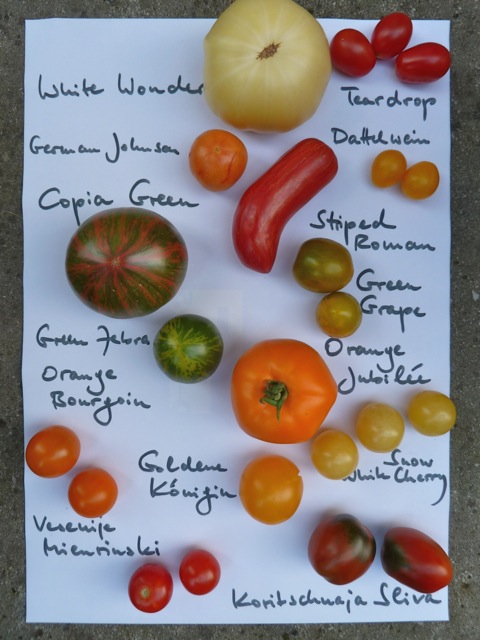 White Wonder
Teardrop
German Johnson
Dattelwein
Copia Green
Striped
Roman
Green
Grape
Green Zebra
Orange
Jubilée
Orange
Bourgoin
Snow
White Cherry
Goldene
Königin
Verenije
Mieurinski
Koritschnaja Sliva